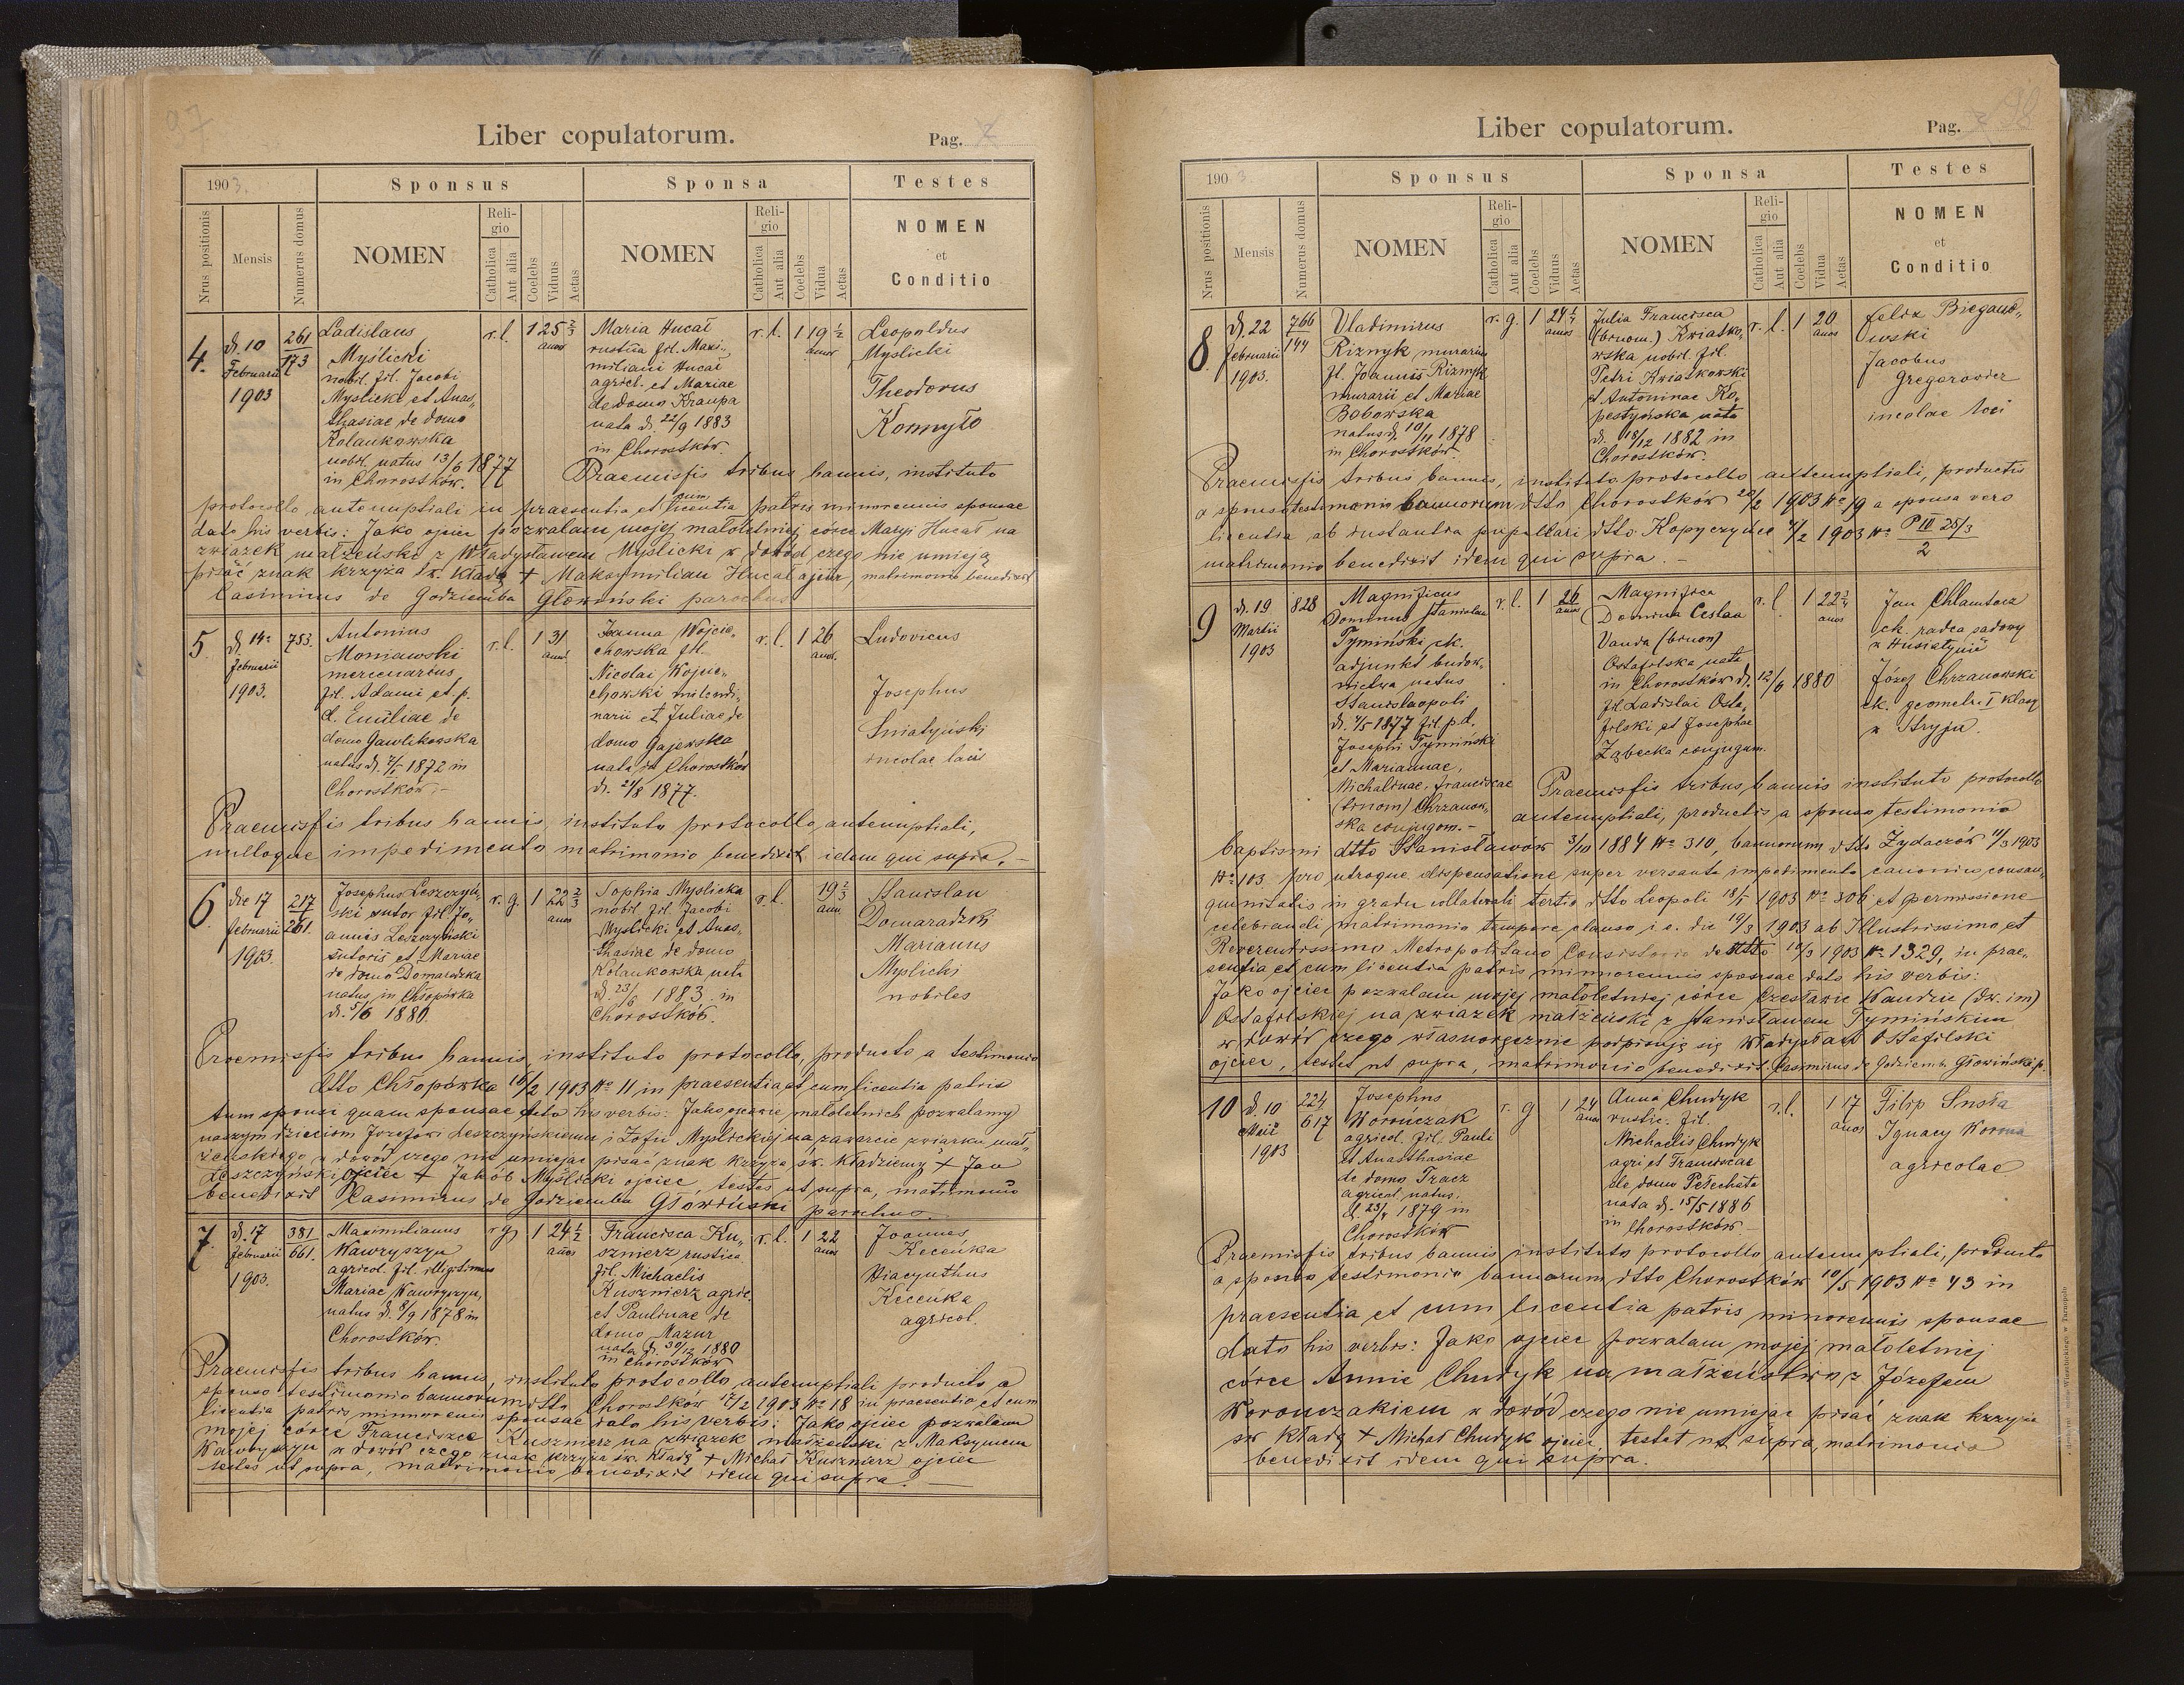 97
Liber copulatorum.
Pag.
1903.
Sponsus
Sponsa
Testes
Nrus positionis
Mensis
Numerus domus
NOMEN
Religio
Catholica
Aut alia
Coelebs
Viduus
Aetas
NOMEN
Religio
Catholica
Aut alia
Coelebs
Vidua
Aetas
NOMEN
et
Conditio
4.
d. 10
Februarii
1903
261
173
Ladislaus
Myślicki
nobil. fil. Jacobi
Myslicki et Anas„
thasiae de domo
Kolankowska
nobil. natus 13/6 1877
in Chorostków.
r. l.
1
25 2/3
annor
Maria Hucał
rustica fil. Maxi„
miliani Hucał
agricl. et Mariae
de domo Kraupa
nata d. 22/9 1883
in Chorostków.
r. l.
1
19 1/2
annor
Leopoldus
Myslicki
Theodorus
Konmyło
Praemissis tribus bannis, instituto
protocollo antenuptiali in praesentia et cum licentia patris minorennis sponsae
dato his verbis: Jako ojciec pozwalam mojej małoletniej córce Maryi Hucał na
związek małżeński z Władysławem Myslicki w dowód czego nie umieją
pisać znak krzyża św. kładę + Maksymilian Hucał ojciec, matrimonio benedixit
Casimirus de Godziemba Głowiński parochus
5.
d. 14a
Februarii
1903.
753.
Antonius
Moniawski
mercenarius
fil. Adami et p.
d. Emiliae de
domo Gawlikowska
natus d. 7/1 1872 in
Chorostków.-
r. l.
1
31
Joanna Wojcie„
chowska fil.
Nicolai Wojcie„
chowski
narii et Juliae de
domo Gajewska
nata in Chorostków
d. 21/8 1877.
r. l.
1
26
Ludovicus
Josephus
Sniatyński
incolae loci
Praemissis tribus bannis, instituto protocollo antenuptiali,
nulloque impedimento matrimonio benedixit idem qui supra.-
6.
die 17
februarii
1903.
217
261.
Josephus Leszczyń„
ski sutor fil. Jo„
annis Leszczyński
sutoris et Mariae
de domo Domaradzka
natus in Chłopówka
d. 5/6 1880.
r. g.
1
22 2/3
annor
Sophia Myslicka
nobil fil. Jacobi
Myslicki et Anas„
thasiae de domo
Kolankowska nata
d. 23/6 1883 in
Chorostków.
r. l.
19 2/3
Stanislau
Domaradzki
Marianus
Myslicki
nobiles
Praemissis tribus bannis, instituto protocollo, producto a testimonio
dtto Chłopówka 16/2 1903 No 11 in praesentia et cum licentia patris
tum sponsi quam sponsae dato his verbis: Jako ojcowie małoletnich pozwalamy
naszym dzieciom Józefowi Leszczyńskiemu i Zofii Myslickiej na zawarcie związku mał„
żeńskiego w dowód czego nie umiejąc pisać znak krzyża św. kładziemy + Jan
Leszczyński ojciec + Jakób Myślicki ojciec, testes ut supra, matrimonio
benedixit Casimirus de Godziemba Głowiński parochus.
7.
d. 17
februarii
1903.
381
661.
Maximilianus
Wawryszyn
agricol. fil. illegitimus
Mariae Wawryszyn,
natus d. 8/9 1878 in
Chorostków.
r g.
1
24 1/2
annor
Francisca Ku„
sznierz rustica
fil. Michaelis
Kusznierz agric.
et Paulinae de
domo Mazur
nata d. 30/12 1880
in Chorostków
r. l.
1
22
annor
Joannes
Kecenka
Hiacynthus
Kecenka
agricol.
Praemissis tribus bannis, instituto protocollo antenuptiali producto a
sponso testimonio bannorum dtto Chorostków 17/2 1903 No 18 in praesentia et cum
licentia patris minorennis sponsae dato his verbis: Jako ojciec pozwalam
mojej córce Franciszce Kusznierz na związek małżeński z Maksymem
Wawryszyn w dowód czego znak krzyża św. kładę + Michał Kusznierz ojciec
testes ut supra, matrimonio benedixit idem qui supra.-
98
Liber copulatorum.
Pag.
1903.
Sponsus
Sponsa
Testes
Nrus positionis
Mensis
Numerus domus
NOMEN
Religio
Catholica
Aut alia
Coelebs
Viduus
Aetas
NOMEN
Religio
Catholica
Aut alia
Coelebs
Vidua
Aetas
NOMEN
et
Conditio
8
d. 22
februarii
1903.
766
144
Vladimirus
Riznyk murarius
fil. Joannis Riznyk
murarii et Mariae
Bobowska
natus d. 10/11 1878
in Chorostków.
r. g.
1
24 1/4
annor
Julia Francisca
(bnom.) Kwiatko„
wska nobil. fil.
Petri Kwiatkowski
et Antoninae Ko„
pestyńska nata
d. 18/12 1882 in
Chorostków.
r. l.
1
20
annor
Felix Biegand„
owski
Jacobus
Gregorowicz
incolae loci
Praemissis tribus bannis, instituto protocollo antenuptiali, productis
a sponso testimonio bannorum dtto Chorostków 22/2 1903 No 19 a sponsa vero
licentia ab instantia pupillari dtto Kopyczyńce 4/2 1903 No P III 25/3
2
matrimonio benedixit idem qui supra.-
9
d. 19
Martii
1903
828
Magnificus
Dominus Stanislau
Tymiński ck.
adjunkt budow„
nictwa natus
Stanislaopoli
d. 7/5 1877 fil. p. d.
Josephi Tymiński
et Mariannae,
Michalinae, Franciscae
(trnom) Chrzanow„
ska conjugum.-
r. l.
1
26
annor
Magnifica
Domina Ceslaa
Vanda (bnom)
Ostafilska nata
in Chorostków d. 12/6 1880
fil. Ladislai Osta„
filski et Josephae
Ząbecka conjugum.
r. l.
1
22 3/4
annor
Jan Chlamtacz
ck. radca sądowy
w Husiatynie
Józef Chrzanowski
ck. geometr I klasy
w Stryju.
Praemissis tribus bannis instituto protocollo
antenuptiali, productis a sponso testimonio
baptismi dtto Stanisławów 3/10 1884 No 310, bannorum dtto Żydaczów 11/3 1903
No 103. pro utroque dispensatione super versante impedimento canonico consan„
guinitatis in gradu collaterali tertio dtto Leopoli 18/1 1903 No 306 et permissione
celebrandi matrimonio tempore clauso i. e. die 19/3 1903 ab Illustrissimo et
Reverendissimo Metropolitano Consistorio de dtto 10/3 1903 No 1329, in prae„
sentia et cum licentia patris minorennis sponsae dato his verbis:
Jako ojciec pozwalam mojej małoletniej córce Czesławie Wandzie (dw. im)
Ostafilskiej na związek małżeński z Stanisławem Tymińskim
w dowód czego własnoręcznie podpisuję się Władysław Ostafilski
ojciec, testes ut supra, matrimonio benedixit. Casimirus de Godziemba Głowiński p.
10
d. 10
Maii
1903
224
617
Josephus
Worończak
agricol. fil. Pauli
et Anasthasiae
de domo Tracz
agricol. natus.
d. 23/4 1879 in
Chorostków
r. g
1
24
annor
Anna Chudyk
rustic. fil.
Michaelis Chudyk
agri et Franciscae
de domo Pelechata
nata d. 15/5 1886
in Chorostków.-
r. l.
1
17
annor
Filip Susła
Ignacy Worma
agricolae
Praemissis tribus bannis instituto protocollo antenuptiali, producto
a sponso testimonio bannorum dtto Chorostków 10/5 1903 No 43 in
praesentia et cum licentia patris minorennis sponsae
dato his verbis: Jako ojciec pozwalam mojej małoletniej
córce Annie Chudyk na małżeństwo z Józefem
Woronczakiem w dowód czego nie umiejąc pisać znak krzyża
św kładę + Michał Chudyk ojciec, testes ut supra, matrimonio
benedixit idem qui supra.